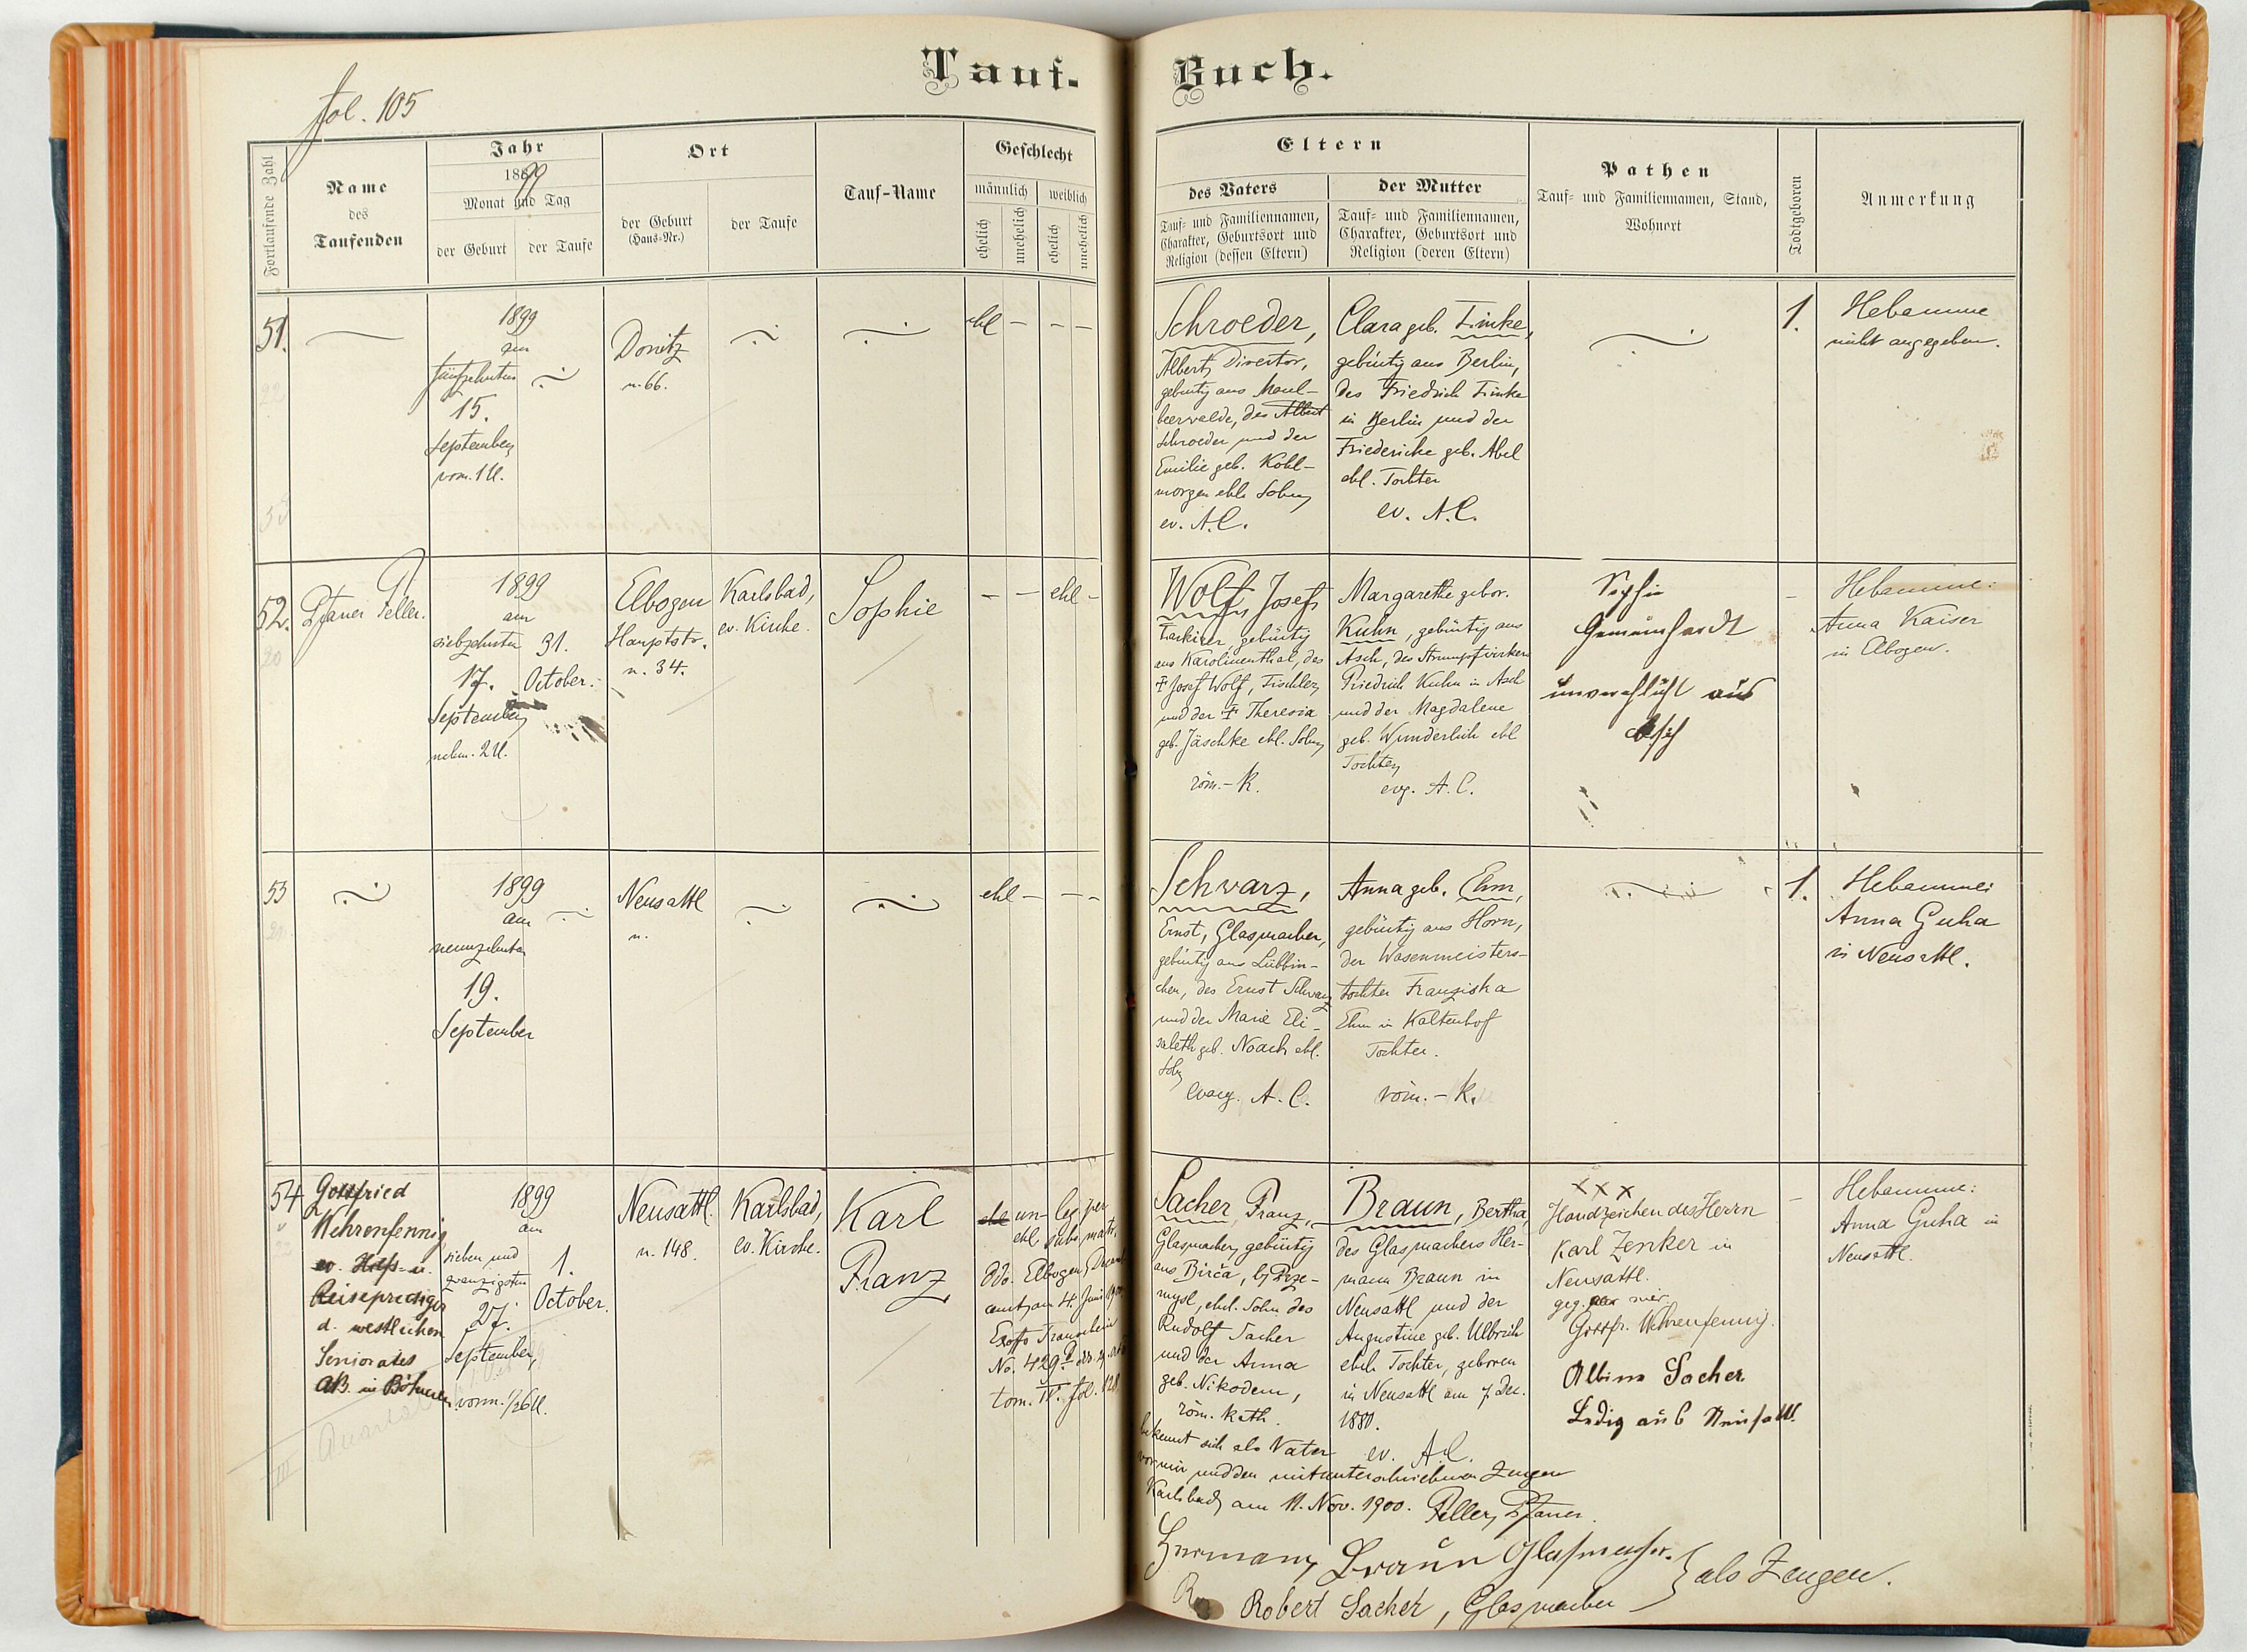 Tauf-Buch.
fol. 105
Fortlaufende Zahl
Name
des
Taufenden
Jahr
1899
Monat und Tag
der Geburt
der Taufe
Ort
der Geburt
(Haus-Nr.)
der Taufe
Tauf-Name
Geschlecht
männlich
weiblich
ehelich
unehelich
ehelich
unehelich
Eltern
des Vaters
Tauf- und Familiennamen,
Charakter, Geburtsort und
Religion (dessen Eltern)
der Mutter
Tauf- und Familiennamen,
Charakter, Geburtsort und
Religion (deren Eltern)
Pathen
Tauf- und Familiennamen, Stand,
Wohnort
Todtgeboren
Anmerkung
51.
1899
am
fünfzehnten
15.
September
vorm. 1 U.
Donitz
n. 66.
ehl — — —
Schroeder,
Albert, Director,
gebürtig aus Maul-
beerwalde, des Albert
Schroeder und der
Emilie geb. Kohl-
morgen ehl. Sohn,
ev. A.C.
Clara geb. Finke,
gebürtig aus Berlin,
des Friedrich Finke
in Berlin und der
Friedericke geb. Abel
ehl. Tochter
ev. A.C.
1.
Hebamme
nicht angegeben.
52.
Pfarrer Feller.
1899
am
siebzehnten
17.
September
nchm. 2 U.
31.
October.
Elbogen
Hauptstr.
n. 34.
Karlsbad,
ev. Kirche.
Sophie
— — ehl —
Wolf, Josef,
gebürtig
aus Karolinenthal, des
† Josef Wolf, Tischler,
und der † Theresia
geb. Jäschke ehl. Sohn,
röm.-K.
Margarethe gebor.
Kuhn, gebürtig aus
Asch, des Strumpfwirkers
Friedrich Kuhn in Asch
und der Magdalene
geb. Wunderlich ehl
Tochter,
evg. A.C.
Sophie
Gemeinhardt
unverehlicht aus
Asch
—
Hebamme:
Anna Kaiser
in Elbogen.
53
1899
am
neunzehnten
19.
September
Neusattl
n.
ehl — — —
Schwarz,
Ernst, Glasmacher,
gebürtig aus Lübbin-
chen, des Ernst Schwarz
und der Marie Eli-
sabeth geb. Noack ehl.
Sohn
evang. A.C.
Anna geb. Ehm,
gebürtig aus Horn,
der Wasenmeisters-
tochter Franziska
Ehm in Kaltenhof
Tochter.
röm.-K.
1.
Hebamme:
Anna Guha
in Neusattl.
54
Gottfried
Wehrenfennig
ev. Hilfs- u.
Reiseprediger
d. westlichen
Seniorates
AB. in Böhmen
III Quartal
1899
am
sieben und
zwanzigsten
27.
September,
vorm. 1/26 U.
1.
October.
Neusattl.
n. 148.
Karlsbad,
ev. Kirche.
Karl
Franz
ehl un- leg. per
ehl subs. matr.
ddo. Elbogen,
amt, am 4. Juni
Exoffo Trauschein
No. 429
tom. II. fol. 128
Sacher, Franz,
Glasmacher, gebürtig
aus Birča, bj Prze-
mysl, ehel. Sohn des
Rudolf Sacher
und der Anna
geb. Nikodem,
röm. kath.
bekennt sich als Vater
vor mir und den mitunterschriebenen Zeugen
Karlsbad, am 11. Nov. 1900. Feller, Pfarrer.
Braun, Bertha,
des Glasmachers Her-
mann Braun in
Neusattl und der
Augustine geb. Ulbrich
ehel. Tochter, geboren
in Neusattl am 7. Dec.
1880.
ev. A.C.
XXX
Handzeichen des Herrn
Karl Zenker in
Neusattl.
geg. mir
Gottfr. Wehrenfennig.
Albine Sacher
Ledig aus Neusattl.
—
Hebamme:
Anna Guha in
Neusattl.
Hermann Braun Glasmacher. } als Zeugen.
Robert Sacher, Glasmacher